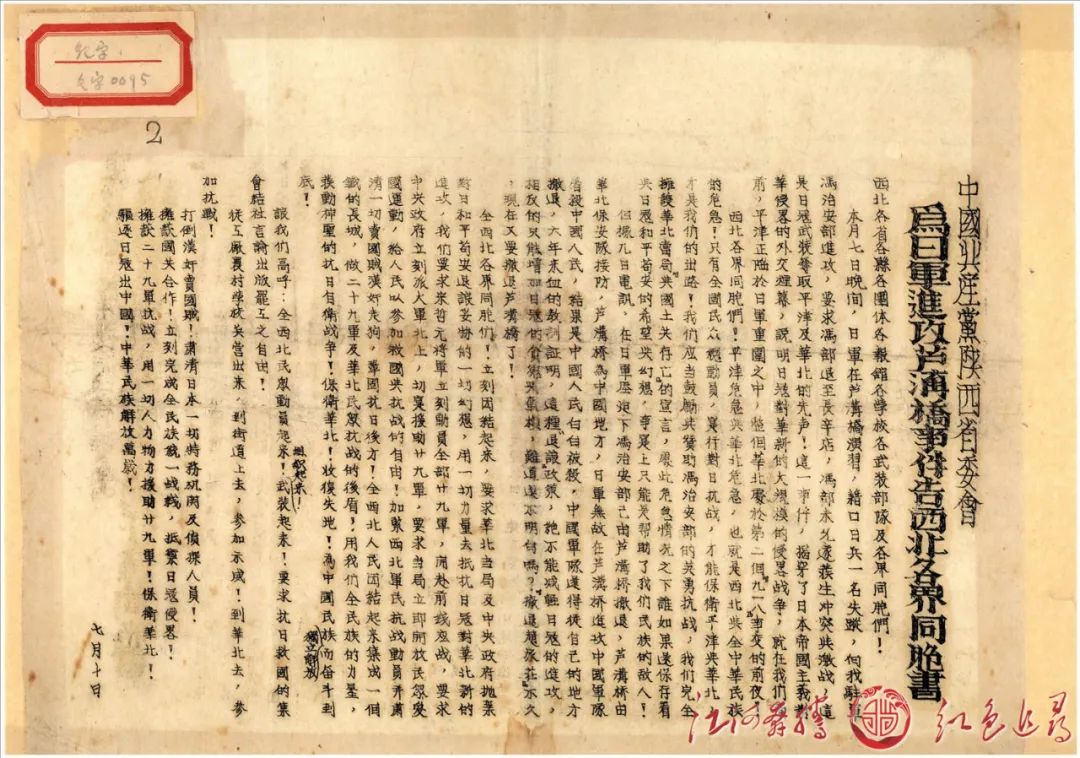 中國共产黨陝西省委會
爲日軍進攻芦溝橋事件告西北各界同胞書
西北各省各縣各團体各報館各學校各武装部隊及各界同胞們！
本月七日晚间，日軍在芦溝橋演習，藉口日兵一名失踪，向我駐軍
馮治安部進攻，要求馮部退至長辛店，馮部未允遂發生冲突與激战，這
是日冠武裝奪取平津及華北的先声！這一事件，揭穿了日本帝國主義對
華侵畧的外交煙幕，説明日冠對華新的大規模的侵畧战争，就在我們
前，平津正陷於日軍重圍之中，整個華北處於第二個九一八事变的前夜！
西北各界同胞們！平津危急與華北危急，也就是西北與全中華民族
的危急！只有全國民众總動員，実行對日抗战，才能保衛平津與華北，
才是我們的出路！我們应当鼓勵與赞助馮治安部的英勇抗战，我們完全
擁護華北當局與國土共存亡的宣言，處此危急情况之下誰如果還保存着
與日冠和平苟安的希望與幻想，事実上只能是帮助了我們民族的敌人！
但據九日電訊，在日軍壓迫下馮治安部已由芦溝橋撤退，芦溝橋由
華北保安隊接防，芦溝橋為中國地方，日軍無故在芦溝橋進攻中國軍隊
屠殺中國人民，結果是中國人民白白被殺，中國軍隊還得從自己的地方
撤退，六年来血的教訓証明，這種退讓政策，絶不能减輕日冠的進攻，
相反的只能增加日冠的氣燄與野心，難道還不明白嗎？撤退豐台不久
，現在又要撤退芦溝橋了！
全西北各界同胞們！立刻团結起来，要求華北当局及中央政府抛棄
對日和平苟安退讓妥協的一切幻想，用一切力量去抵抗日冠對華北新的
進攻，我們要求宋哲元将軍立刻動員全部廿九軍，開赴前線应战，要求
中央政府立刻派大軍北上，切実援助廿九軍，要求当局立即開放民众愛
國運動，給人民以参加救國與抗战的自由！加緊西北軍民抗战動員并肅
清一切賣國贼漢奸走狗，鞏固抗日後方！全西北人民団結起来集成一個
鐵的長城，做二十九軍及華北民众抗战的後盾！用我們全民族的力量，
推動神聖的抗日自衛战争！保衛華北！收復失地！為中國民族獨立解放而奋斗到
底！
讓我們高呼：全西北民众動員起来！組織起来！武装起来！要求抗日救國的集
會結社言論出版罷工之自由！
從工廠農村學校與營出来，到街道上去，参加示威！到華北去，参
加抗戰！
打倒漢奸賣國贼！肅清日本一切特務机関及偵探人員！
擁護國共合作！立刻完成全民族統一战線，抵禦日冠侵畧！
擁護二十九軍抗战，用一切人力物力援助廿九軍！保衛華北！
驅逐日冠出中國！中華民族解放萬歲！
七月十日
文字0095
2
江河奔腾
红色追寻